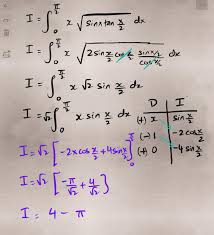 I = ∫₀^{π/2} x √(sinx tan x/2) dx
I = ∫₀^{π/2} x √(2 sin x/2 cos x/2 · (sin x/2)/(cos x/2)) dx
I = ∫₀^{π/2} x √2 sin x/2 dx
I = √2 ∫₀^{π/2} x sin x/2 dx
D I
(+) x sin x/2
(-) 1 -2cos x/2
(+) 0 -4 sin x/2
I = √2 [-2x cos x/2 + 4 sin x/2]₀^{π/2}
I = √2 [-π/√2 + 4/√2]
I = 4 - π